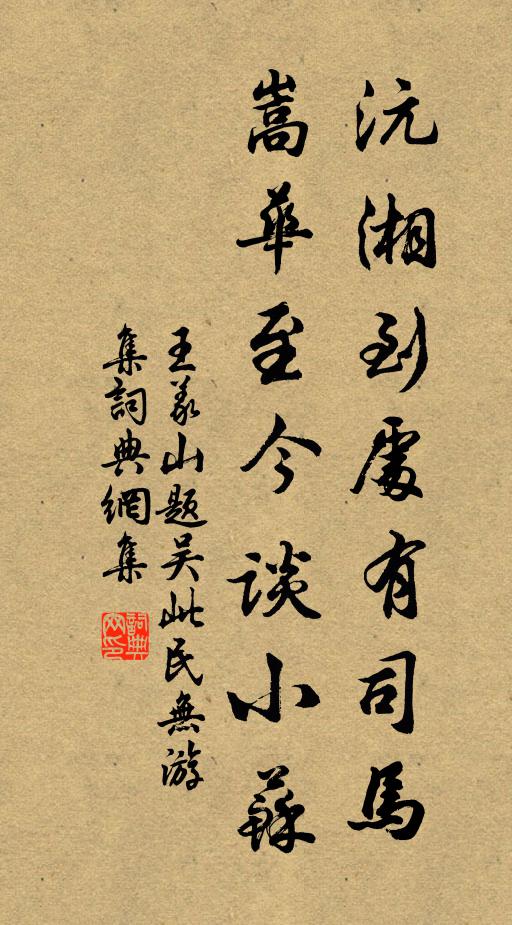 沅湘到處有司馬
嵩華至今談小蘇
王義山題吴此民無游
集詞典網集
詞典網印